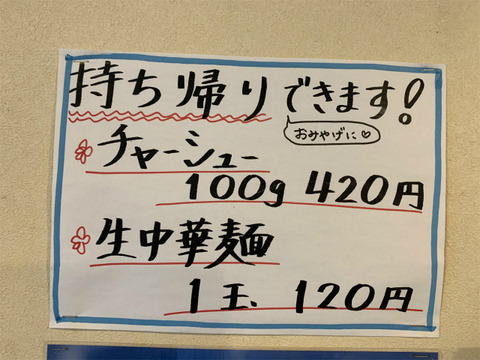 持ち帰りできます!
おみやげに♡
チャーシュー
100g 420円
生中華麺
1玉、120円